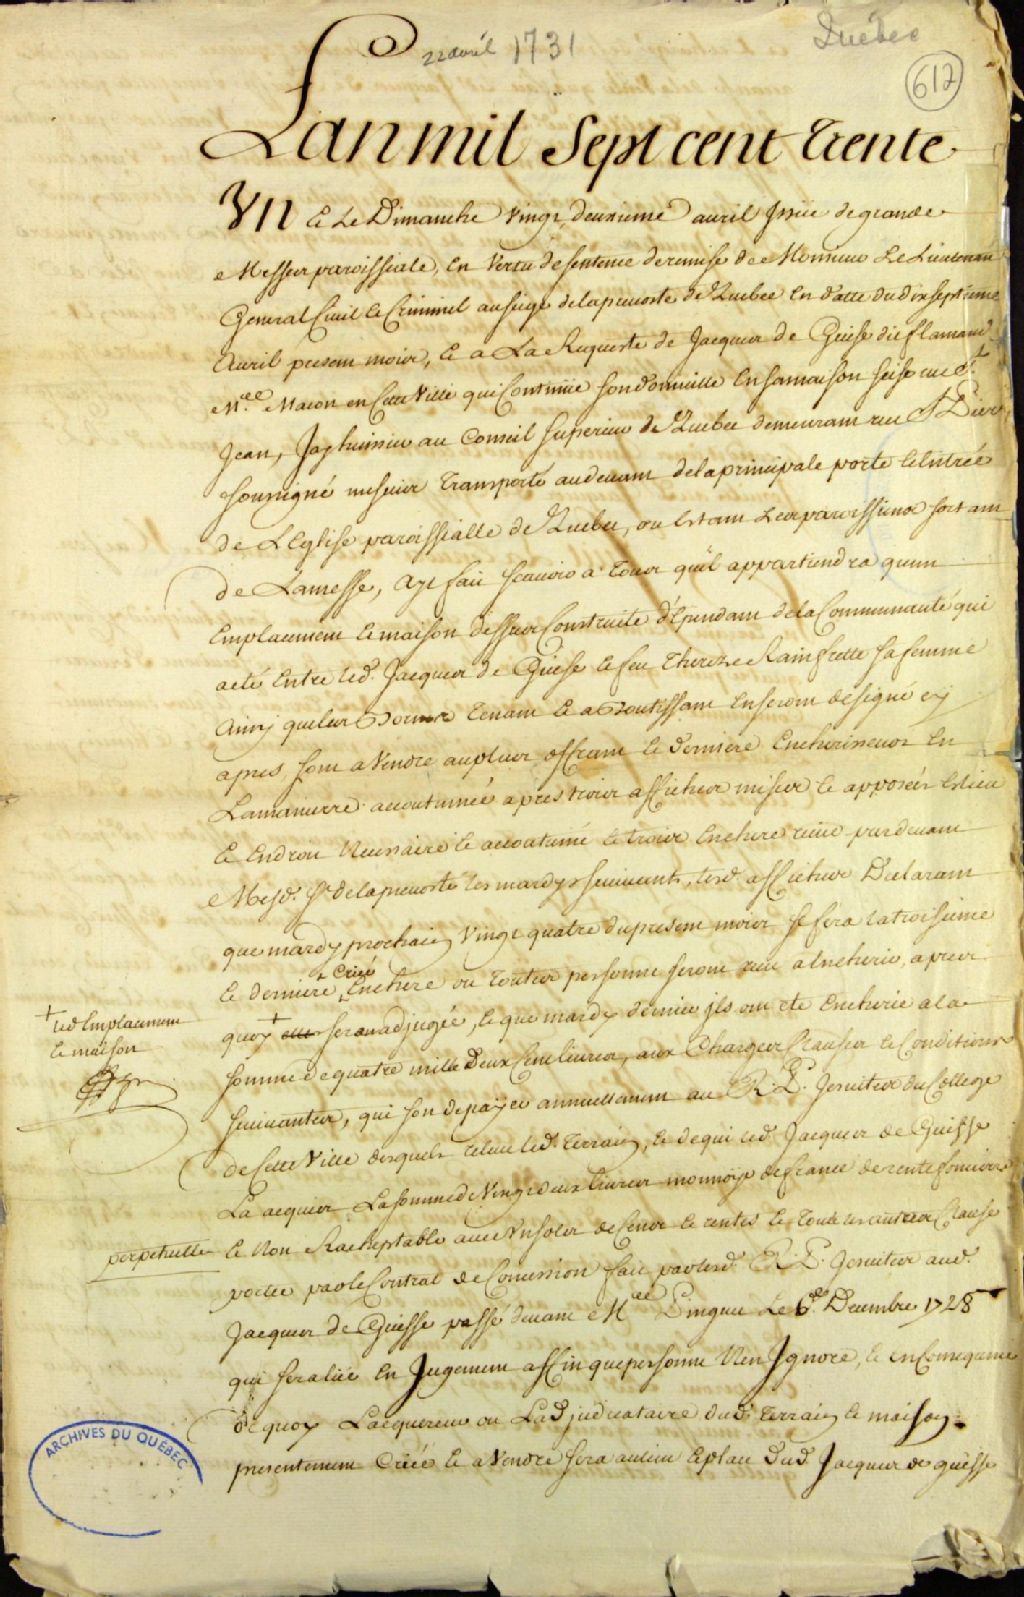 22 avril 1731
Québec
612
Lan mil Sept cent Trente
Un Et Le Dimanche vingt deuxieme avril Issüe de grande
Messe parroissiale, En vertu de sentence de remise de Monsieur Le Lieutenant
General Civil et Criminel au siege de la prevosté de Quebec En datte du dix septieme
Avril present mois, et a La Requeste de Jacques de Guise dit flamand
Me. Macon en Cette Ville qui Continüe son domicille En sa maison seise rue St.
Jean, Jay huissier au Conseil superieur de Quebec demeurant rue St Pierre
soussigné me suis Transporté au devant de la principale porte et Entrée
de LEglise parroissialle de Quebec, ou Estant Les parroissiens sortant
de La messe, ay fait scavoir a Tous quil appartiendra quun
Emplacement et maison dessus Construite dEpendant de la Communauté qui
a eté Entre led. Jacques de Guise et feu Therese Rainfrette sa femme
Ainsy que leurs Tenant et aBoutissant En seront désigné cy
apres, sont a Vendre au plus offrant et dernier Encherisseur En
La maniere accoutumée apres trois affiches mises et apposées Es lieu
et Endroit Necessaire et accoutumé et trois Enchere reçue pardevant
Mesd. Srs de la prevosté les mardys suivants, lesd. affiches Declarant
que mardy prochain vingt quatre du present mois se fera la troisieme
et derniere Criée Enchere ou Toutes personne seront reçu a Encherir, apres
+ led Emplacement
et maison
quoy + sera adjugée, et que mardy dernier ils ont eté Encherie a la
somme de quatre mille Deux Cent livres, aux Charges Clauses et Conditions
suivantes, qui son de payer annuellement au R. P. Jesuites du College
de Cette Ville desquels releve led. Terrain, et de qui led. Jacques de Guisse
La acquis La somme de Vingt deux livres monnoye de france de rente fonciere
perpetuelle et Non Racheptable avec Un sol de Cence et rentes et Toutes les autres Clause
portée par le Contrat de Concession fait par lesd. R. P. Jesuites aud.
Jacques de Guisse passé devant Me Pinguet Le 6e. Decembre 1728
qui sera lüe En Jugement affin que personne N'en Ignore, et en Consequence
de quoy Lacquereur ou Ladjudicataire dud. Terrain et maison
presentement Criée et a Vendre sera au lieu et place dud. Jacques de guesse
ARCHIVES DU QUÉBEC